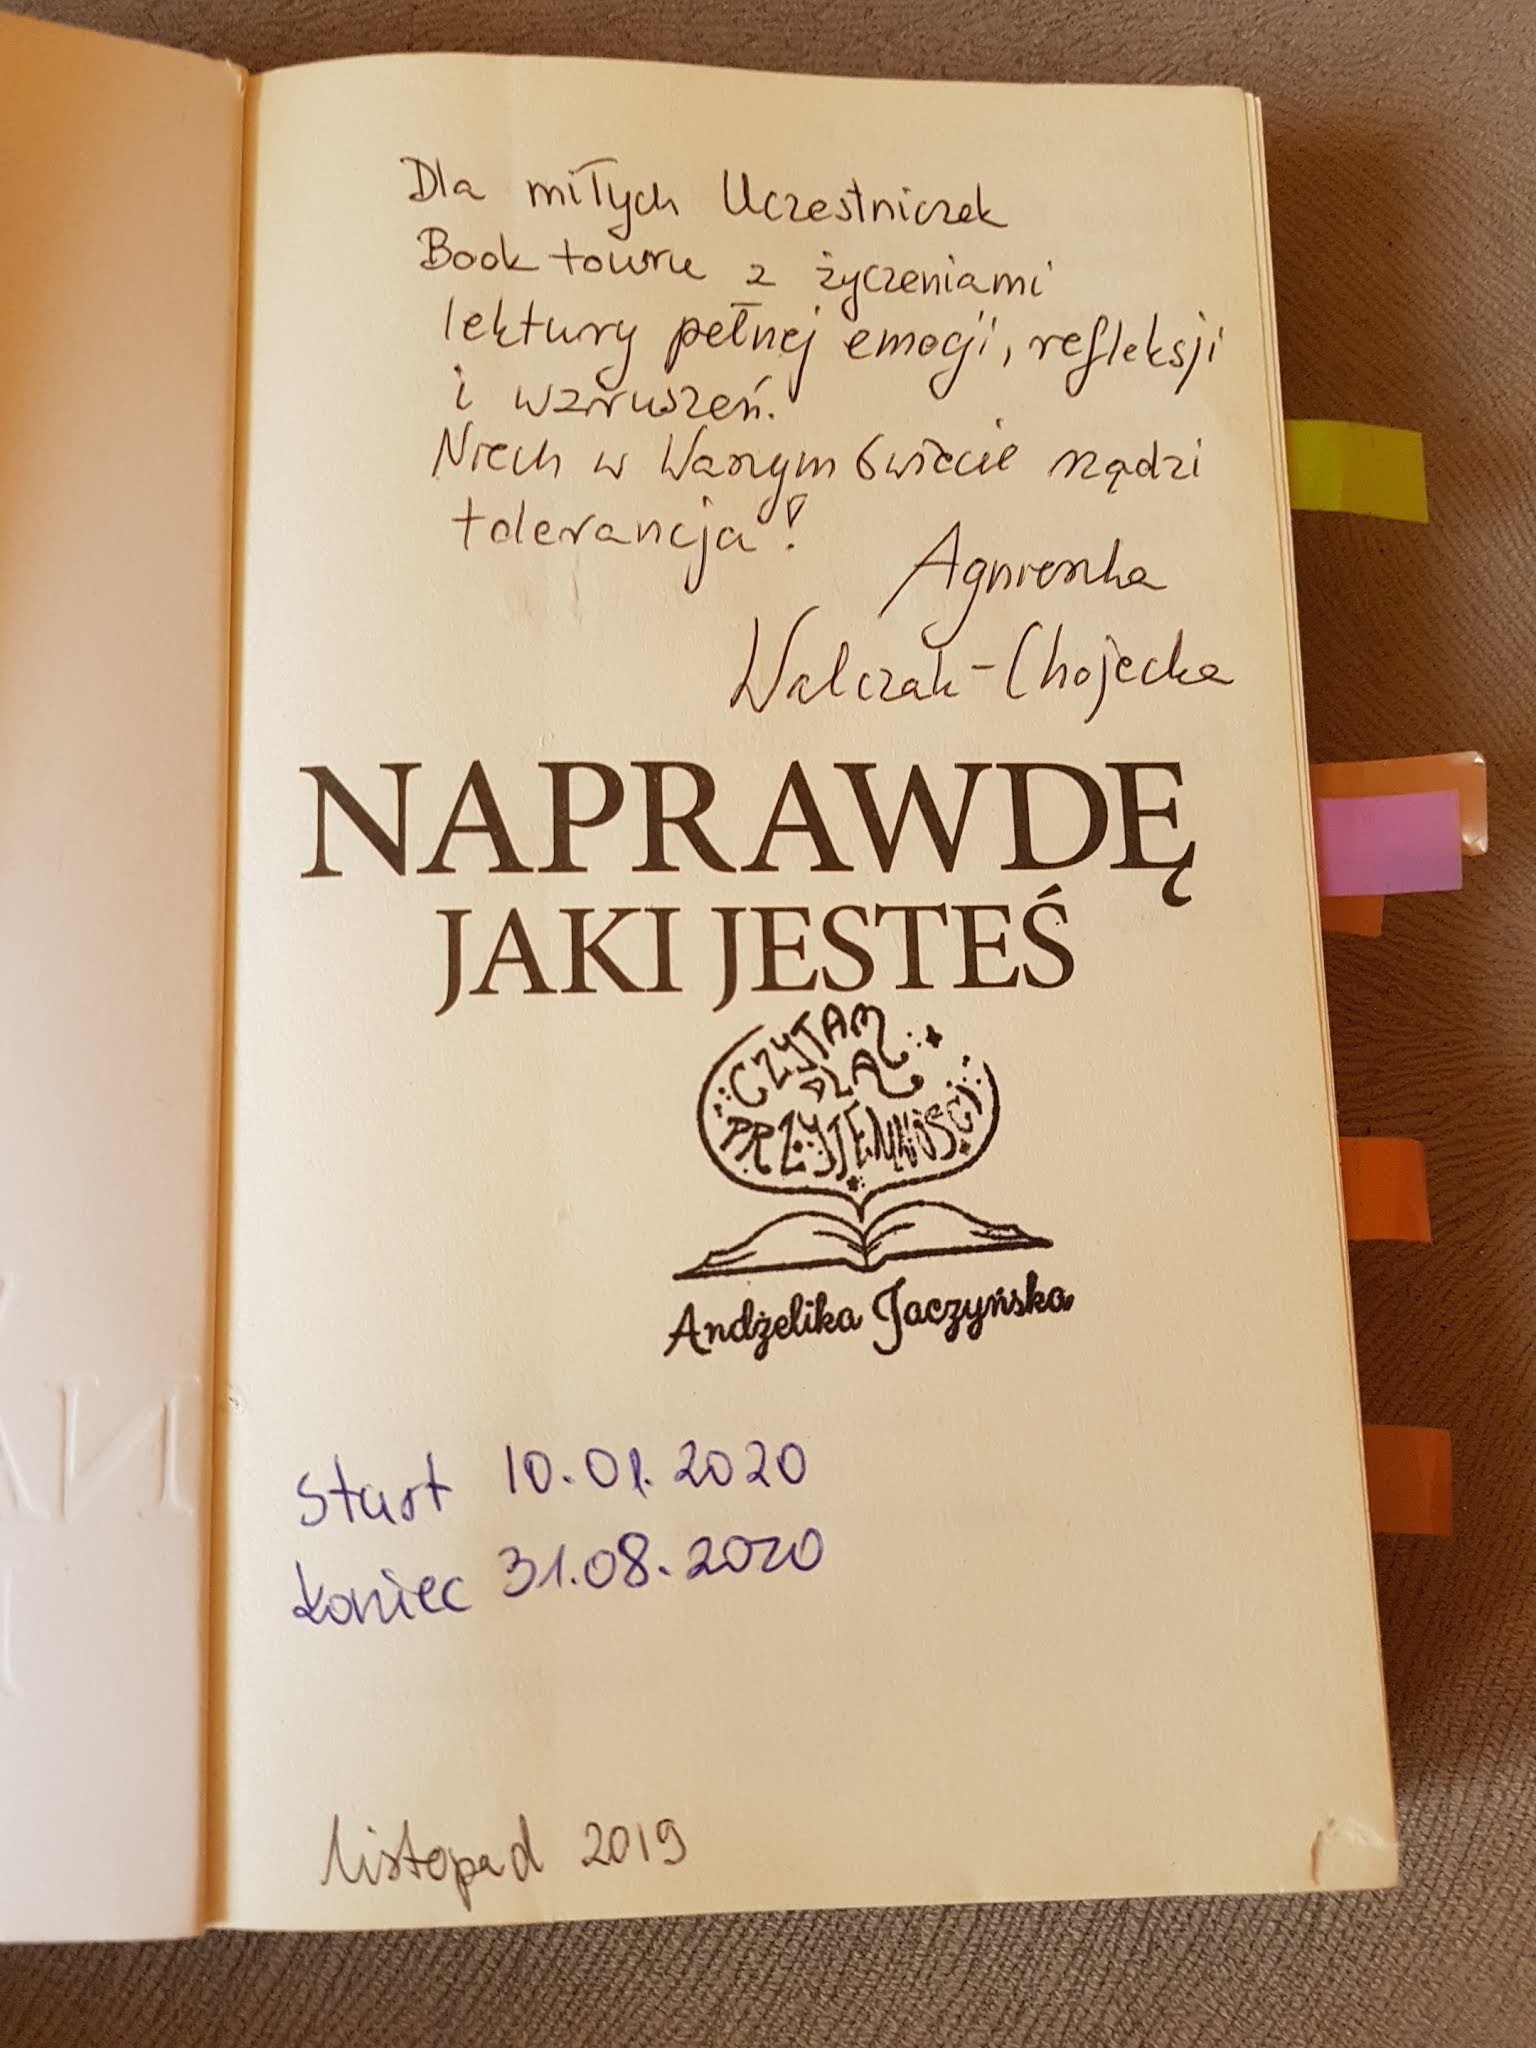 Dla miłych Uczestniczek
Book touru z życzeniami
lektury pełnej emocji, refleksji
i wzruszeń.
Niech w Waszym świecie rządzi
tolerancja!
Agnieszka
Walczak-Chojecka
NAPRAWDĘ
JAKI JESTEŚ
CZYTAM
DLA
PRZYJEMNOŚCI
Andżelika Jaczyńska
Start 10.01.2020
Koniec 31.08.2020
listopad 2019